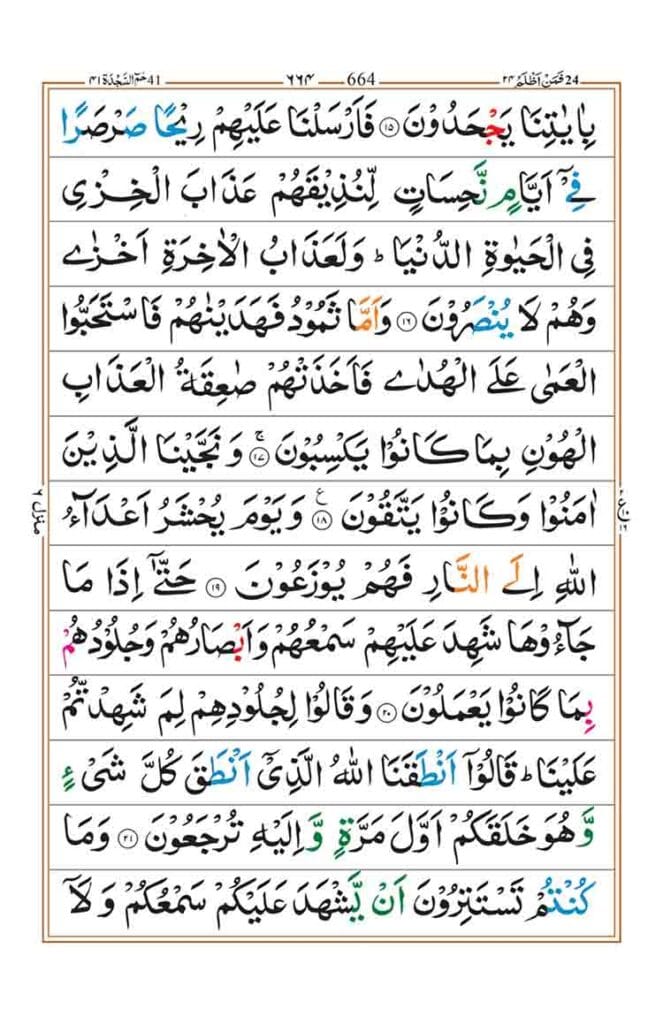 حٰمٓ السَّجْدَة ٤١ 41 ٦٦٤ 664 فَمَنْ اَظْلَمُ ٢٤ 24
بِاٰيٰتِنَا يَجْحَدُوْنَ ﴿١٥﴾ فَاَرْسَلْنَا عَلَيْهِمْ رِيْحًا صَرْصَرًا
فِيْٓ اَيَّامٍ نَّحِسَاتٍ لِّنُذِيْقَهُمْ عَذَابَ الْخِزْيِ
فِي الْحَيٰوةِ الدُّنْيَا ؕ وَلَعَذَابُ الْاٰخِرَةِ اَخْزٰى
وَهُمْ لَا يُنْصَرُوْنَ ﴿١٦﴾ وَاَمَّا ثَمُوْدُ فَهَدَيْنٰهُمْ فَاسْتَحَبُّوا
الْعَمٰى عَلَى الْهُدٰى فَاَخَذَتْهُمْ صٰعِقَةُ الْعَذَابِ
الْهُوْنِ بِمَا كَانُوْا يَكْسِبُوْنَ ﴿١٧﴾ۚ وَنَجَّيْنَا الَّذِيْنَ
اٰمَنُوْا وَكَانُوْا يَتَّقُوْنَ ﴿١٨﴾ ع وَيَوْمَ يُحْشَرُ اَعْدَآءُ
اللّٰهِ اِلَى النَّارِ فَهُمْ يُوْزَعُوْنَ ﴿١٩﴾ حَتّٰٓى اِذَا مَا
جَآءُوْهَا شَهِدَ عَلَيْهِمْ سَمْعُهُمْ وَاَبْصَارُهُمْ وَجُلُوْدُهُمْ
بِمَا كَانُوْا يَعْمَلُوْنَ ﴿٢٠﴾ وَقَالُوْا لِجُلُوْدِهِمْ لِمَ شَهِدْتُّمْ
عَلَيْنَا ؕ قَالُوْٓا اَنْطَقَنَا اللّٰهُ الَّذِيْٓ اَنْطَقَ كُلَّ شَيْءٍ
وَّهُوَ خَلَقَكُمْ اَوَّلَ مَرَّةٍ وَّاِلَيْهِ تُرْجَعُوْنَ ﴿٢١﴾ وَمَا
كُنْتُمْ تَسْتَتِرُوْنَ اَنْ يَّشْهَدَ عَلَيْكُمْ سَمْعُكُمْ وَلَآ
منزل ٦